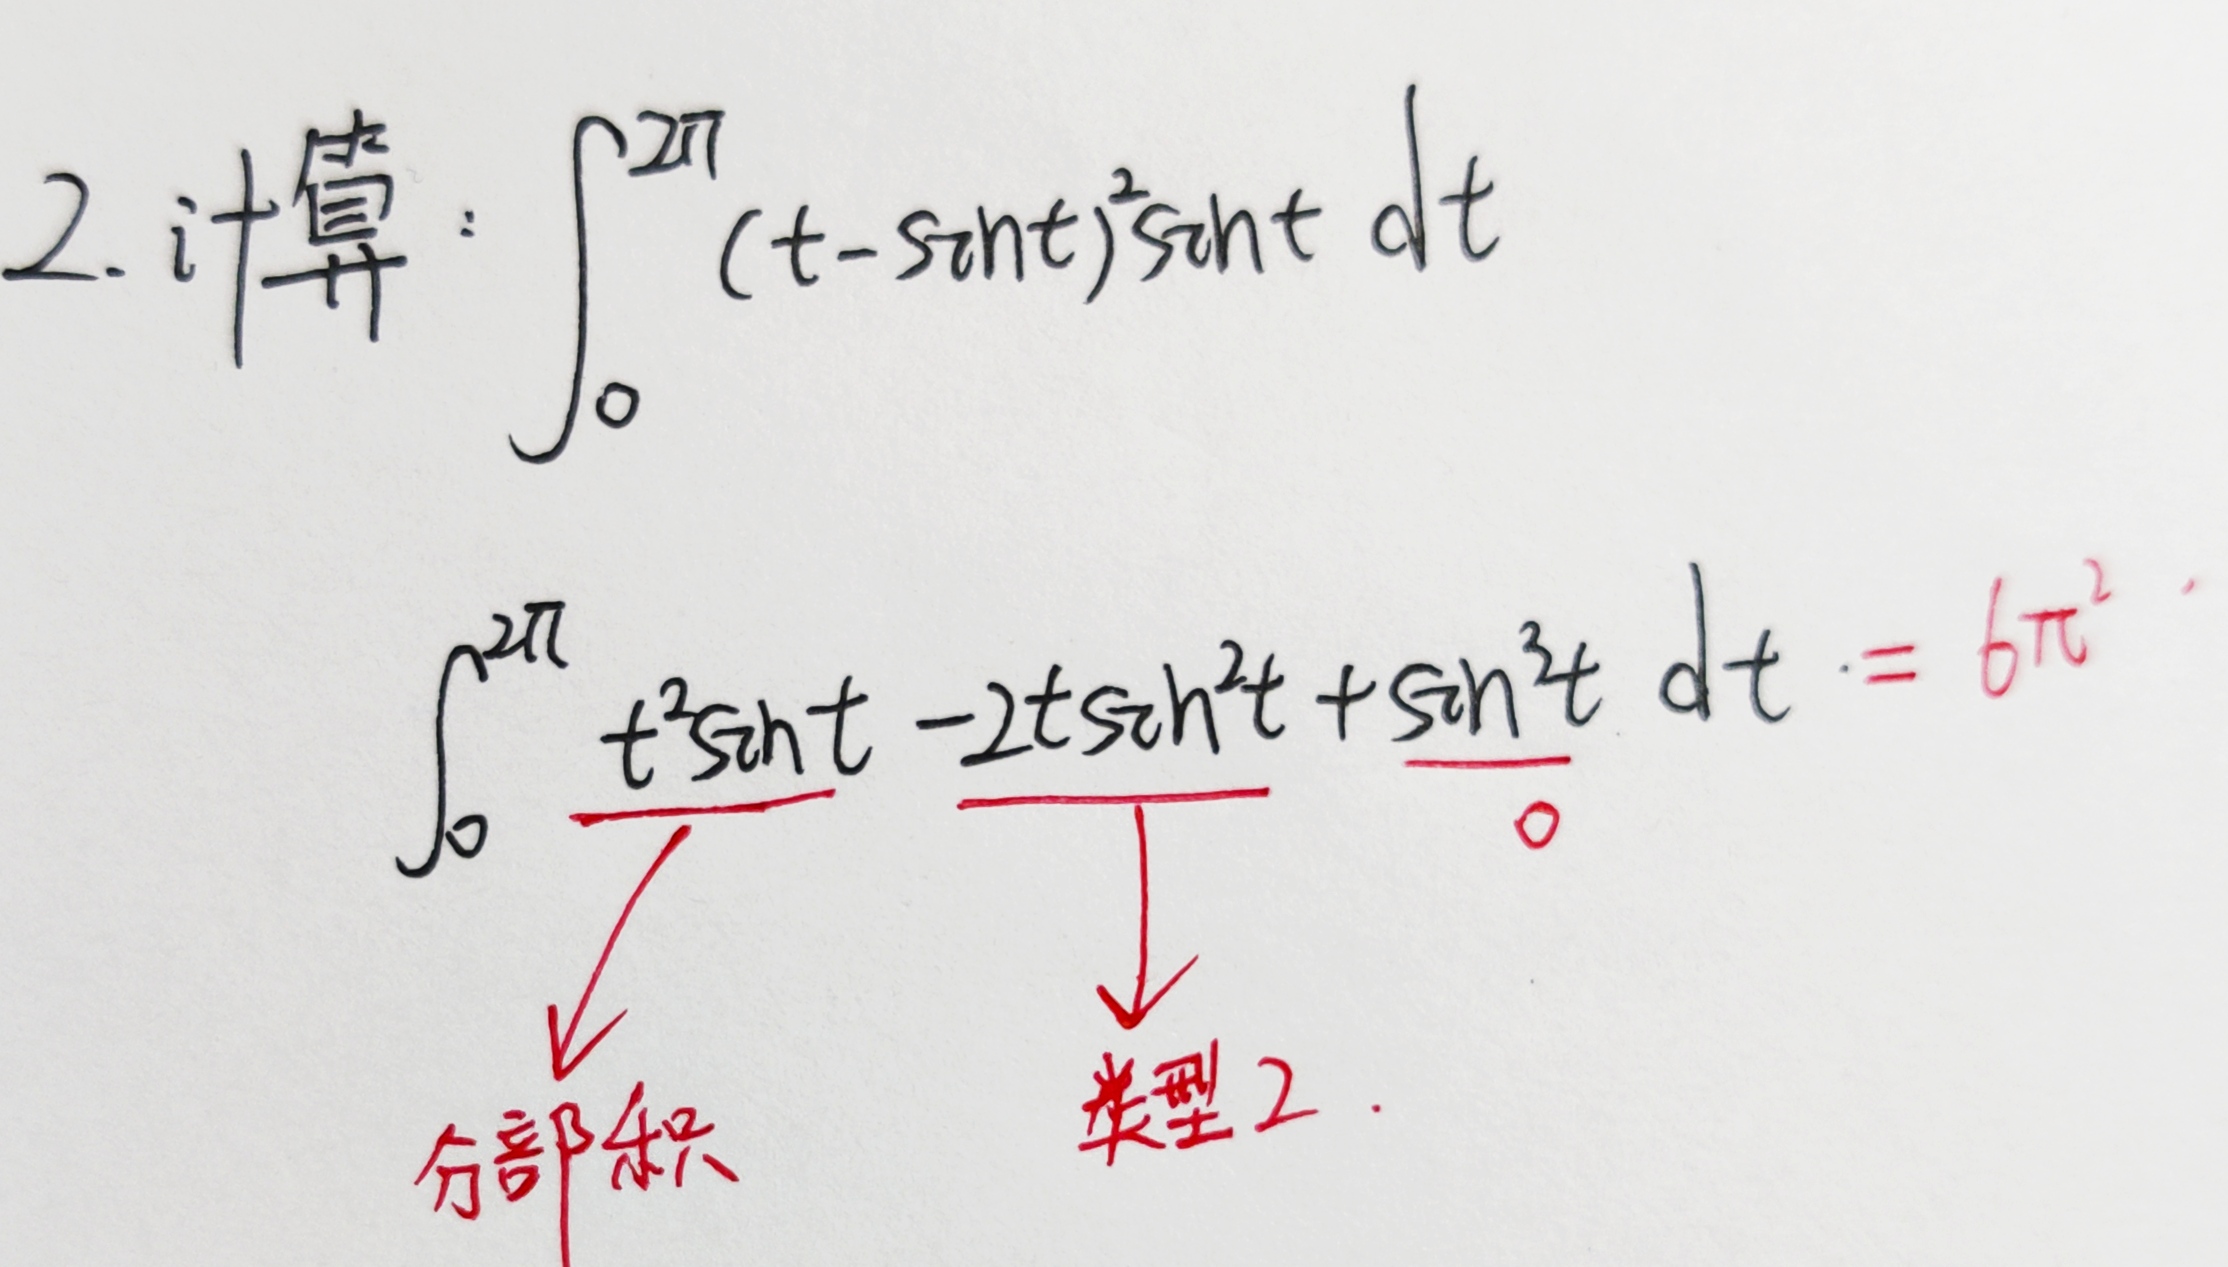 2. 计算: ∫₀^{2π} (t-sint)²sint dt
∫₀^{2π} t²sint -2tsin²t +sin³t dt = 6π²
0
分部积 类型2.